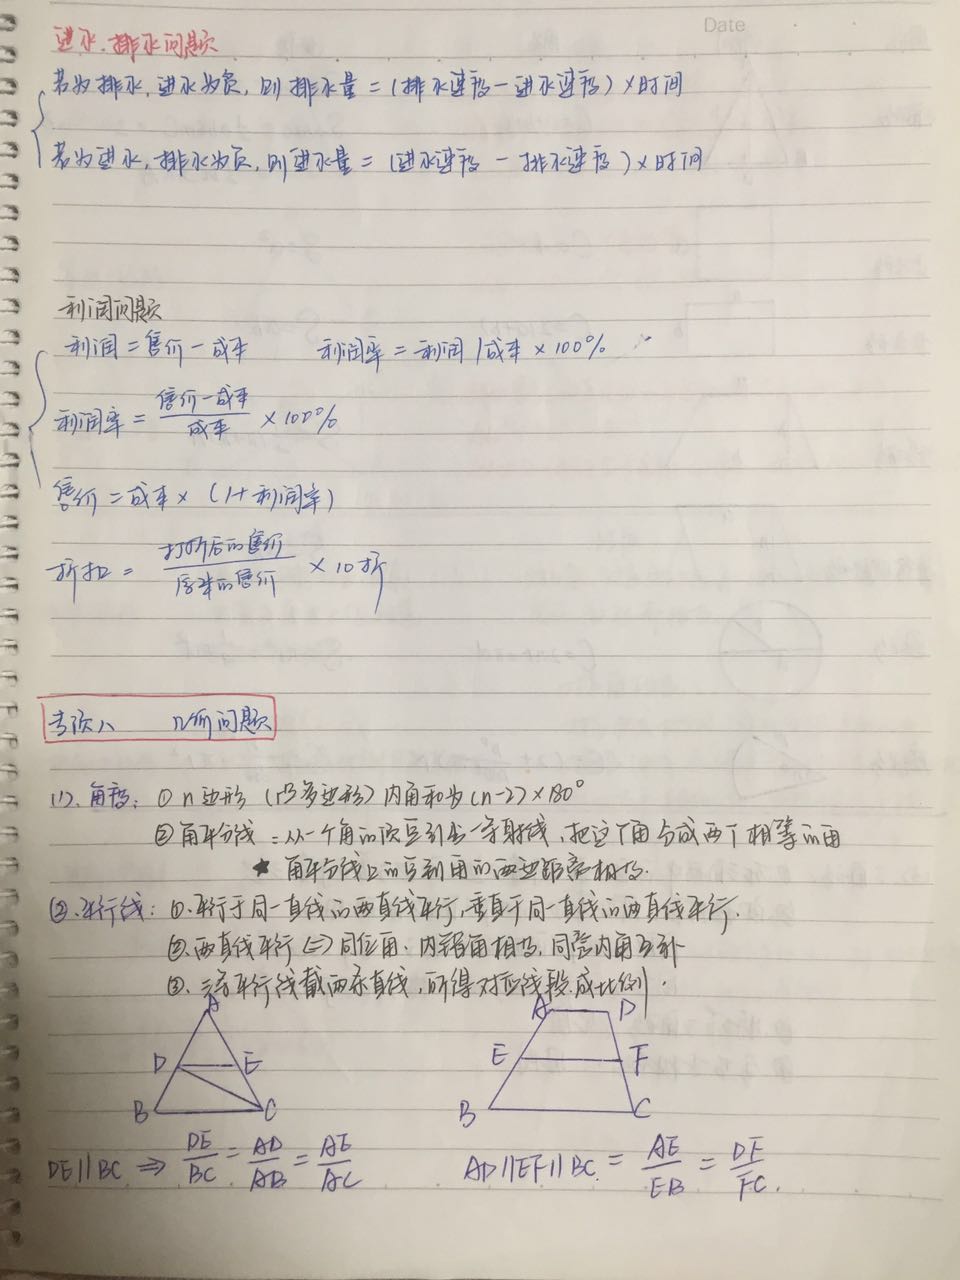 Date
进水、排水问题
若为排水,进水为负,则排水量=(排水速度-进水速度)×时间
若为进水,排水为负,则进水量=(进水速度-排水速度)×时间
利润问题
利润=售价-成本 利润率=利润/成本×100%
利润率=售价-成本/成本×100%
售价=成本×(1+利润率)
折扣=打折后的售价/原来的售价×10折
专项八 几何问题
(1).角度:①n边形(凸多边形)内角和为(n-2)×180°
②角平分线:从一个角的顶点引出一条射线,把这个角分成两个相等的角
★角平分线上的点到角的两边距离相等.
(2).平行线:①.平行于同一直线的两直线平行,垂直于同一直线的两直线平行.
②.两直线平行(=)同位角.内错角相等,同旁内角互补
③.三条平行线截两条直线,所得对应线段成比例.
A
D E
B C
A D
E F
B C
DE∥BC ⇒ DE/BC=AD/AB=AE/AC
AD∥EF∥BC = AE/EB = DF/FC.